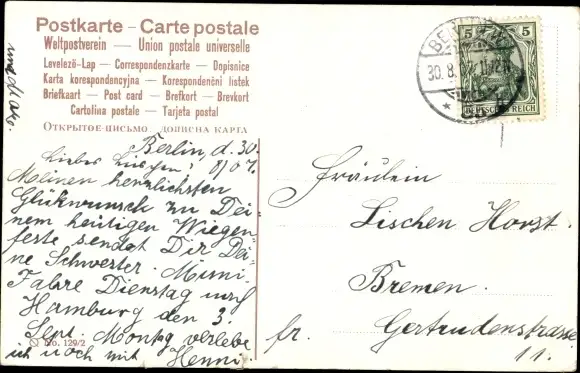 Postkarte - Carte postale
Weltpostverein — Union postale universelle
Levelező-Lap — Correspondenzkarte — Dopisnice
Karta korespondencyjna — Korespondenční listek
Briefkaart — Post card — Brefkort — Brevkort
Cartolina postale — Tarjeta postal
ОТКРЫТОЕ-ПИСЬМО. ДОПИСНА КАРТА
5 5
30.8.
DEUTSCHES REICH
Berlin, d. 30.
8/07.
Liebes Lieschen!
Meinen herzlichsten
Glückwunsch zu Dei-
nem heutigen Wiegen-
feste sendet Dir Dei-
ne Schwester Mimi.
Fahre Dienstag nach
Hamburg den 3.
Sept. Montag verlebe
ich noch mit Henni
No. 129/2
Fräulein
Lischen Horst.
Bremen.
fr. Gertrudenstrasse
11.